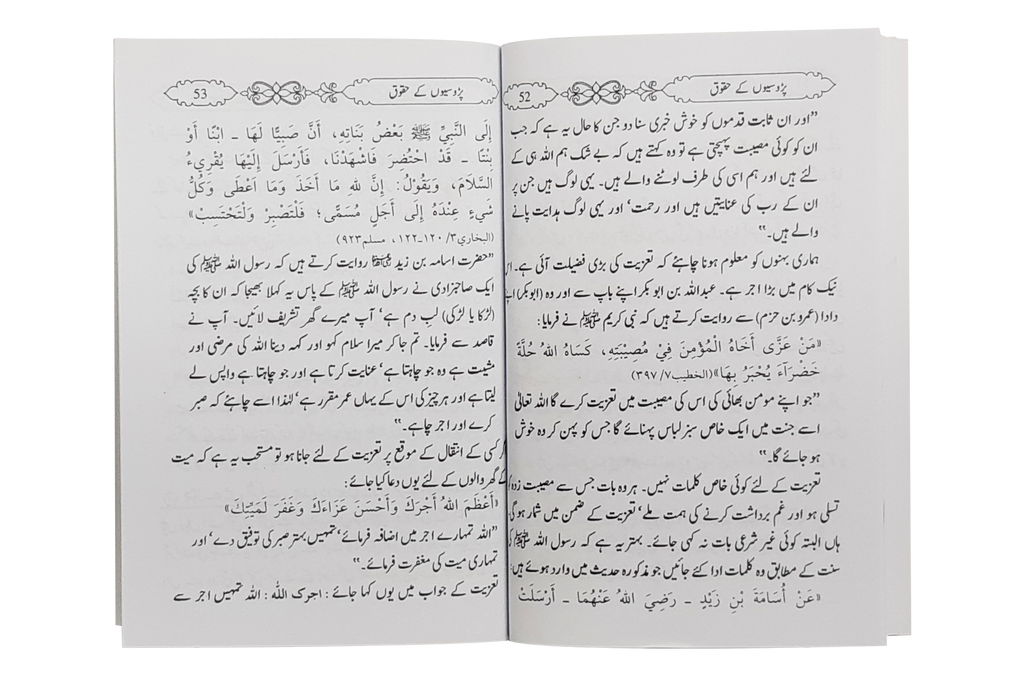 پڑوسیوں کے حقوق
52
”اور ان ثابت قدموں کو خوش خبری سنا دو جن کا حال یہ ہے کہ جب
ان کو کوئی مصیبت پہنچتی ہے تو وہ کہتے ہیں کہ بے شک ہم اللہ ہی کے
لئے ہیں اور ہم اسی کی طرف لوٹنے والے ہیں۔ یہی لوگ ہیں جن پر
ان کے رب کی عنایتیں ہیں اور رحمت‘ اور یہی لوگ ہدایت پانے
والے ہیں۔“
ہماری بہنوں کو معلوم ہونا چاہئے کہ تعزیت کی بڑی فضیلت آئی ہے۔ اس
نیک کام میں بڑا اجر ہے۔ عبداللہ بن ابو بکر اپنے باپ سے اور وہ (ابوبکر) اپنے
دادا (عمرو بن حزم) سے روایت کرتے ہیں کہ نبی کریم ﷺ نے فرمایا:
«مَنْ عَزَّى أَخَاهُ الْمُؤْمِنَ فِيْ مُصِيْبَتِهِ، كَسَاهُ اللهُ حُلَّةً
خَضْرَآءَ يُحْبَرُ بِهَا» (الخطيب٧/ ٣٩٧)
”جو اپنے مومن بھائی کی اس کی مصیبت میں تعزیت کرے گا اللہ تعالیٰ
اسے جنت میں ایک خاص سبز لباس پہنائے گا جس کو پہن کر وہ خوش
ہو جائے گا۔“
تعزیت کے لئے کوئی خاص کلمات نہیں۔ ہر وہ بات جس سے مصیبت زدہ کو
تسلی ہو اور غم برداشت کرنے کی ہمت ملے‘ تعزیت کے ضمن میں شمار ہوگی
ہاں البتہ کوئی غیر شرعی بات نہ کہی جائے۔ بہتر یہ ہے کہ رسول اللہ ﷺ کی
سنت کے مطابق وہ کلمات ادا کئے جائیں جو مذکورہ حدیث میں وارد ہوئے ہیں:
«عَنْ أُسَامَةَ بْنِ زَيْدٍ ـ رَضِيَ اللهُ عَنْهُمَا ـ أَرْسَلَتْ
پڑوسیوں کے حقوق
53
إِلَى النَّبِيِّ ﷺ بَعْضُ بَنَاتِهِ، أَنَّ صَبِيًّا لَهَا ـ ابْنًا أَوْ
بِنْتًا ـ قَدْ احْتُضِرَ فَاشْهَدْنَا، فَأَرْسَلَ إِلَيْهَا يُقْرِيءُ
السَّلَامَ، وَيَقُوْلُ: إِنَّ لِلهِ مَا أَخَذَ وَمَا أَعْطَى وَكُلُّ
شَيءٍ عِنْدَهُ إِلَى أَجَلٍ مُسَمًّى؛ فَلْتَصْبِرْ وَلْتَحْتَسِبْ»
(البخاري٣/ ١٢٠-١٢٢، مسلم٩٢٣)
”حضرت اسامہ بن زید رضی اللہ عنہما روایت کرتے ہیں کہ رسول اللہ ﷺ کی
ایک صاحبزادی نے رسول اللہ ﷺ کے پاس یہ کہلا بھیجا کہ ان کا بچہ
(لڑکا یا لڑکی) لب دم ہے‘ آپ میرے گھر تشریف لائیں۔ آپ نے
قاصد سے فرمایا۔ تم جا کر میرا سلام کہو اور کہہ دینا اللہ کی مرضی اور
مشیت ہے وہ جو چاہتا ہے‘ عنایت کرتا ہے اور جو چاہتا ہے واپس لے
لیتا ہے اور ہر چیز کی اس کے یہاں عمر مقرر ہے‘ لہٰذا اسے چاہئے کہ صبر
کرے اور اجر چاہے۔“
گر کسی کے انتقال کے موقع پر تعزیت کے لئے جانا ہو تو مستحب یہ ہے کہ میت
کے گھر والوں کے لئے یوں دعا کیا جائے:
«أَعْظَمَ اللهُ أَجْرَكَ وَأَحْسَنَ عَزَاءَكَ وَغَفَرَ لَمَيِّتِكَ»
”اللہ تمہارے اجر میں اضافہ فرمائے‘ تمہیں بہتر صبر کی توفیق دے‘ اور
تمہاری میت کی مغفرت فرمائے۔“
تعزیت کے جواب میں یوں کہا جائے: اجرک اللہ: اللہ تمہیں اجر سے